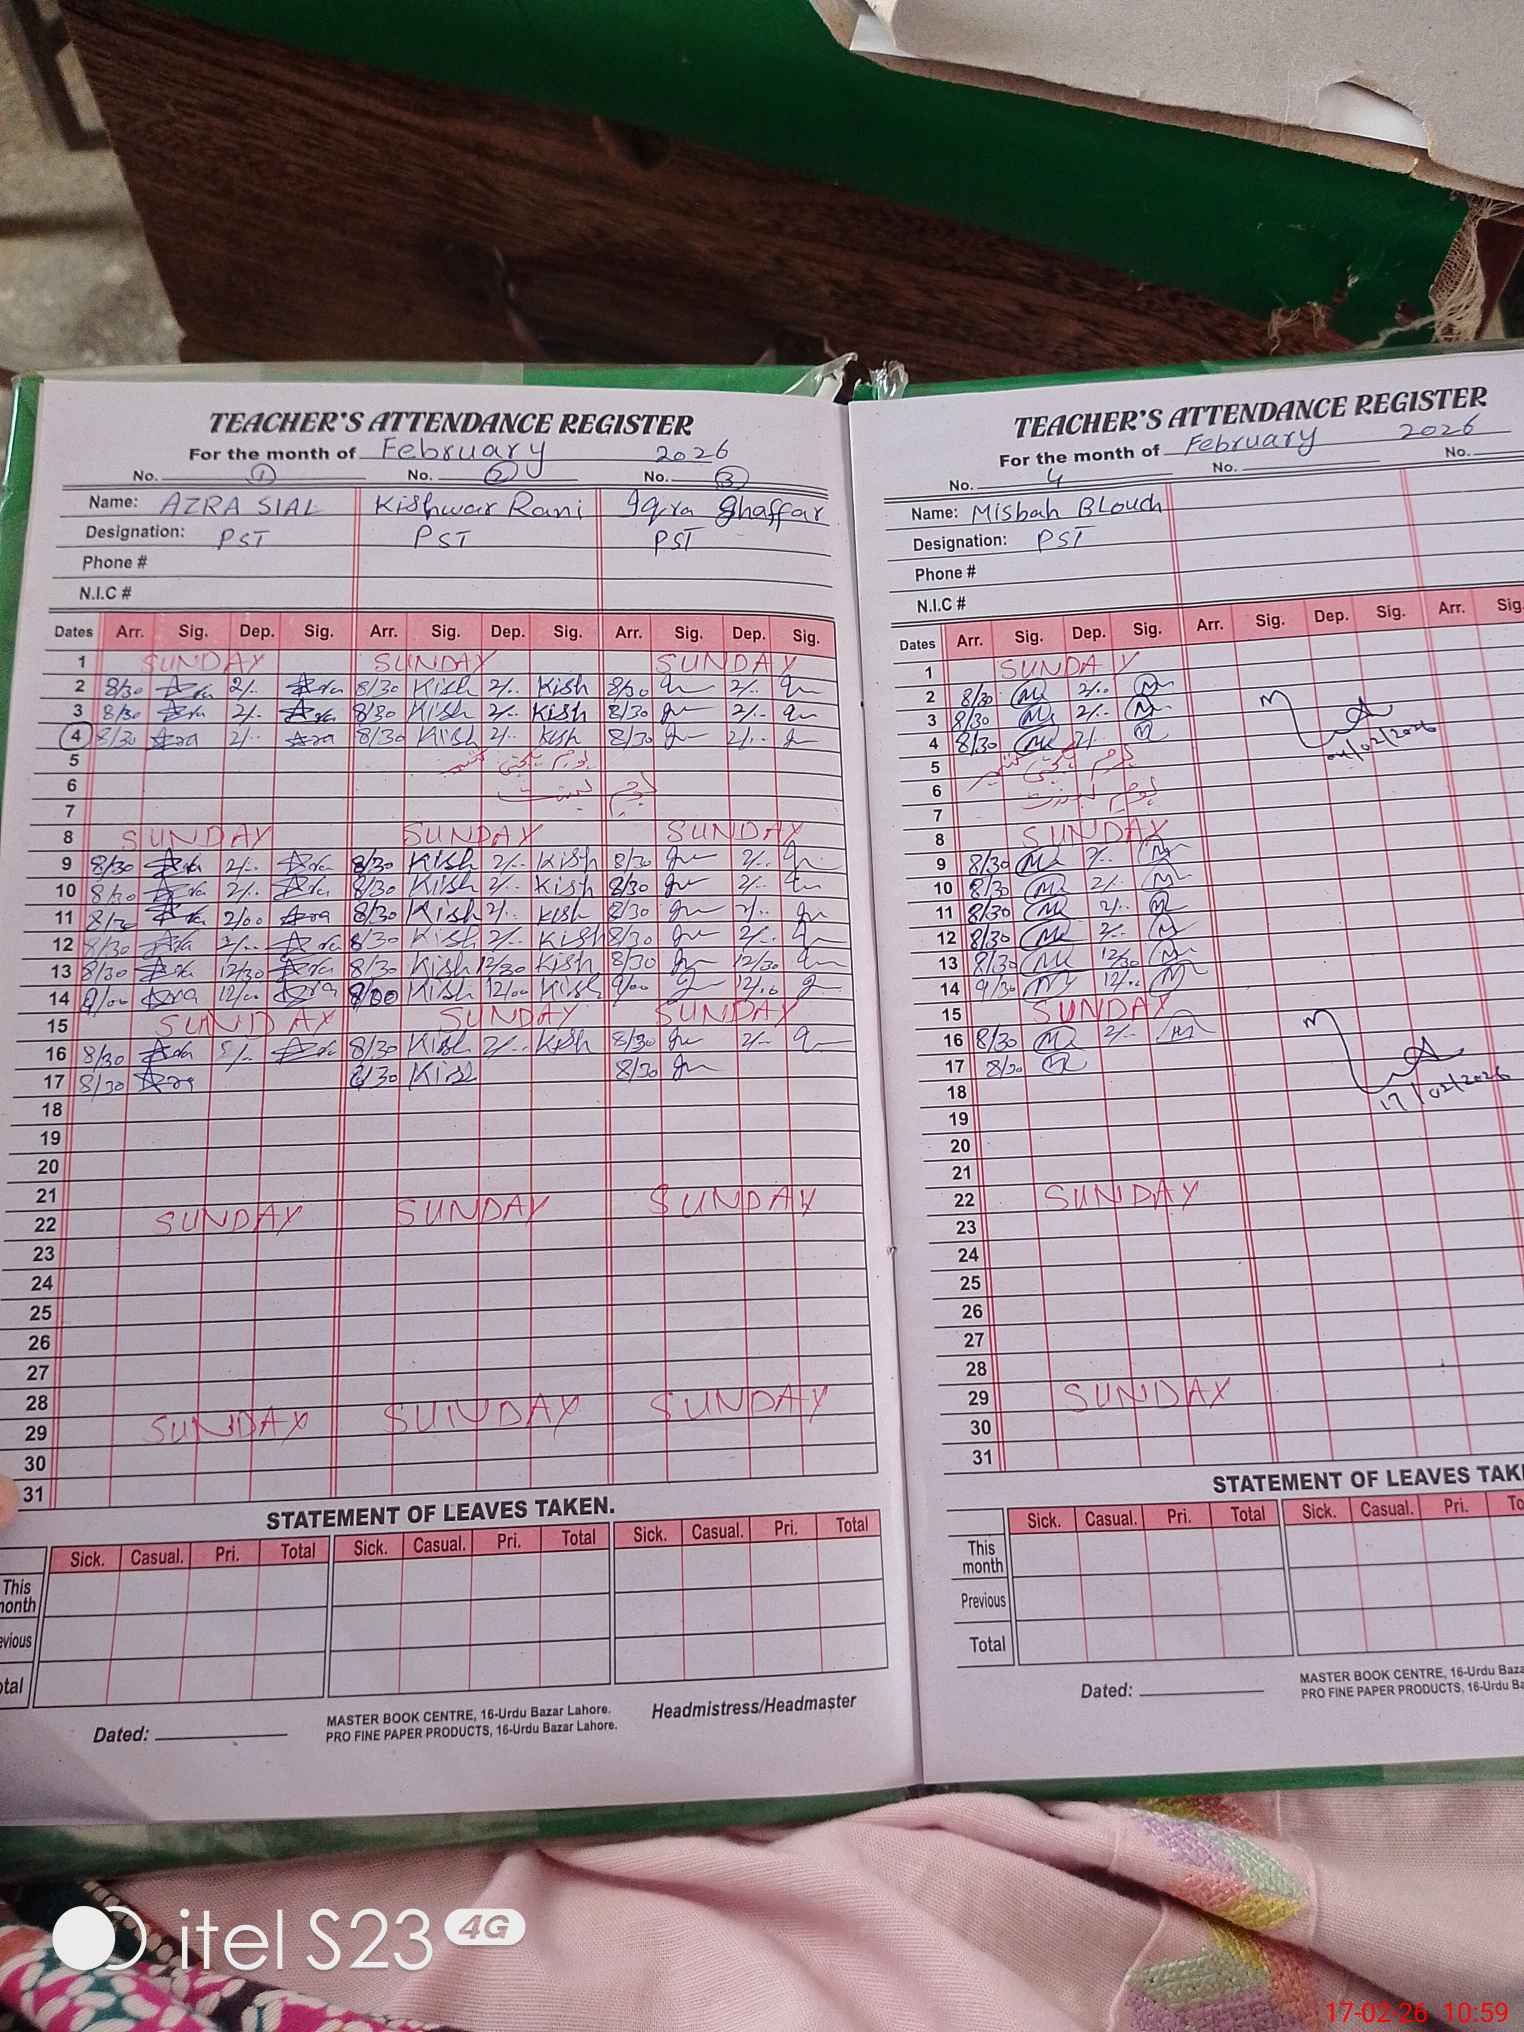 TEACHER'S ATTENDANCE REGISTER
For the month of February 2026
No. 1 No. 2 No. 3
Name: AZRA SIAL Kishwar Rani Iqra Ghaffar
Designation: PST PST PST
Phone #
N.I.C #
Dates Arr. Sig. Dep. Sig. Arr. Sig. Dep. Sig. Arr. Sig. Dep. Sig.
1 SUNDAY SUNDAY SUNDAY
2 8/30 2/.. 8/30 Kish 2/.. Kish 8/30 2/..
3 8/30 2/.. 8/30 Kish 2/.. Kish 8/30 2/..
4 8/30 2/.. 8/30 Kish 2/.. Kish 8/30 2/..
5 یوم یکجہتی کشمیر
6
7
8 SUNDAY SUNDAY SUNDAY
9 8/30 2/.. 8/30 Kish 2/.. Kish 8/30 2/..
10 8/30 2/.. 8/30 Kish 2/.. Kish 8/30 2/..
11 8/30 2/00 8/30 Kish 2/.. Kish 8/30 2/..
12 8/30 2/.. 8/30 Kish 2/.. Kish 8/30 2/..
13 8/30 12/30 8/30 Kish 12/30 Kish 8/30 12/30
14 9/00 12/00 Kish 12/00 Kish 9/00 12/00
15 SUNDAY SUNDAY SUNDAY
16 8/30 8/30 Kish 2/.. Kish 8/30 2/..
17 8/30 8/30 Kish 8/30
18
19
20
21
22 SUNDAY SUNDAY SUNDAY
23
24
25
26
27
28
29 SUNDAY SUNDAY SUNDAY
30
31
STATEMENT OF LEAVES TAKEN.
Sick. Casual. Pri. Total Sick. Casual. Pri. Total Sick. Casual. Pri. Total
This
month
Previous
Total
Dated: MASTER BOOK CENTRE, 16-Urdu Bazar Lahore. Headmistress/Headmaster
PRO FINE PAPER PRODUCTS, 16-Urdu Bazar Lahore.
TEACHER'S ATTENDANCE REGISTER
For the month of February 2026
No. 4 No. No.
Name: Misbah BLouch
Designation: PST
Phone #
N.I.C #
Dates Arr. Sig. Dep. Sig. Arr. Sig. Dep. Sig. Arr. Sig.
1 SUNDAY
2 8/30 2/..
3 8/30 2/..
4 8/30 2/.. 04/02/2026
5 یوم یکجہتی کشمیر
6
7
8 SUNDAY
9 8/30 2/..
10 8/30 2/..
11 8/30 2/..
12 8/30 2/..
13 8/30 12/30
14 9/30 12/..
15 SUNDAY
16 8/30 2/..
17 8/30
18 17/02/2026
19
20
21
22 SUNDAY
23
24
25
26
27
28
29 SUNDAY
30
31
STATEMENT OF LEAVES TAK
Sick. Casual. Pri. Total Sick. Casual. Pri. To
This
month
Previous
Total
Dated: MASTER BOOK CENTRE, 16-Urdu Baza
PRO FINE PAPER PRODUCTS, 16-Urdu Ba
itel S23 4G
17-02-26 10:59